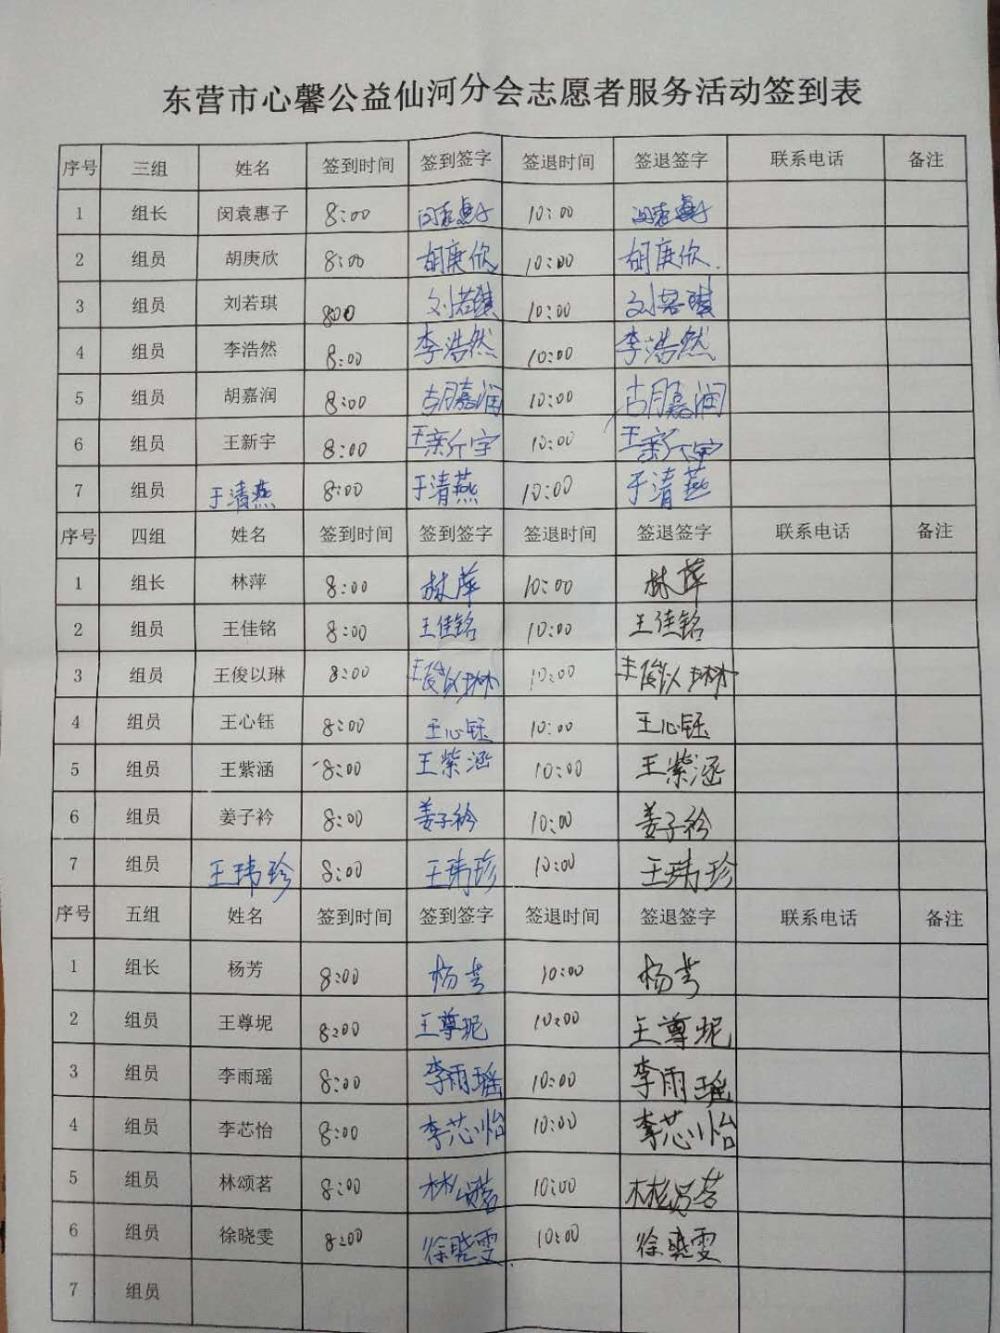 东营市心馨公益仙河分会志愿者服务活动签到表
序号 三组 姓名 签到时间 签到签字 签退时间 签退签字 联系电话 备注
1 组长 闵袁惠子 8:00 闵袁惠子 10:00 闵袁惠子
2 组员 胡庚欣 8:00 胡庚欣 10:00 胡庚欣.
3 组员 刘若琪 800 刘若琪 10:00 刘若琪
4 组员 李浩然 8:00 李浩然 10:00 李浩然
5 组员 胡嘉润 8:00 胡嘉润 10:00 胡嘉润
6 组员 王新宇 8:00 王新宇 10:00 王新宇
7 组员 于清燕 8:00 于清燕 10:00 于清燕
序号 四组 姓名 签到时间 签到签字 签退时间 签退签字 联系电话 备注
1 组长 林萍 8:00 林萍 10:00 林萍
2 组员 王佳铭 8:00 王佳铭 10:00 王佳铭
3 组员 王俊以琳 8:00 王俊以琳 10:00 王俊以琳
4 组员 王心钰 8:00 王心钰 10:00 王心钰
5 组员 王紫涵 8:00 王紫涵 10:00 王紫涵
6 组员 姜子衿 8:00 姜子衿 10:00 姜子衿
7 组员 王玮珍 8:00 王玮珍 10:00 王玮珍
序号 五组 姓名 签到时间 签到签字 签退时间 签退签字 联系电话 备注
1 组长 杨芳 8:00 杨芳 10:00 杨芳
2 组员 王尊坭 8:00 王尊坭 10:00 王尊坭
3 组员 李雨瑶 8:00 李雨瑶 10:00 李雨瑶
4 组员 李芯怡 8:00 李芯怡 10:00 李芯怡
5 组员 林颂茗 8:00 林颂茗 10:00 林颂茗
6 组员 徐晓雯 8:00 徐晓雯 10:00 徐晓雯
7 组员